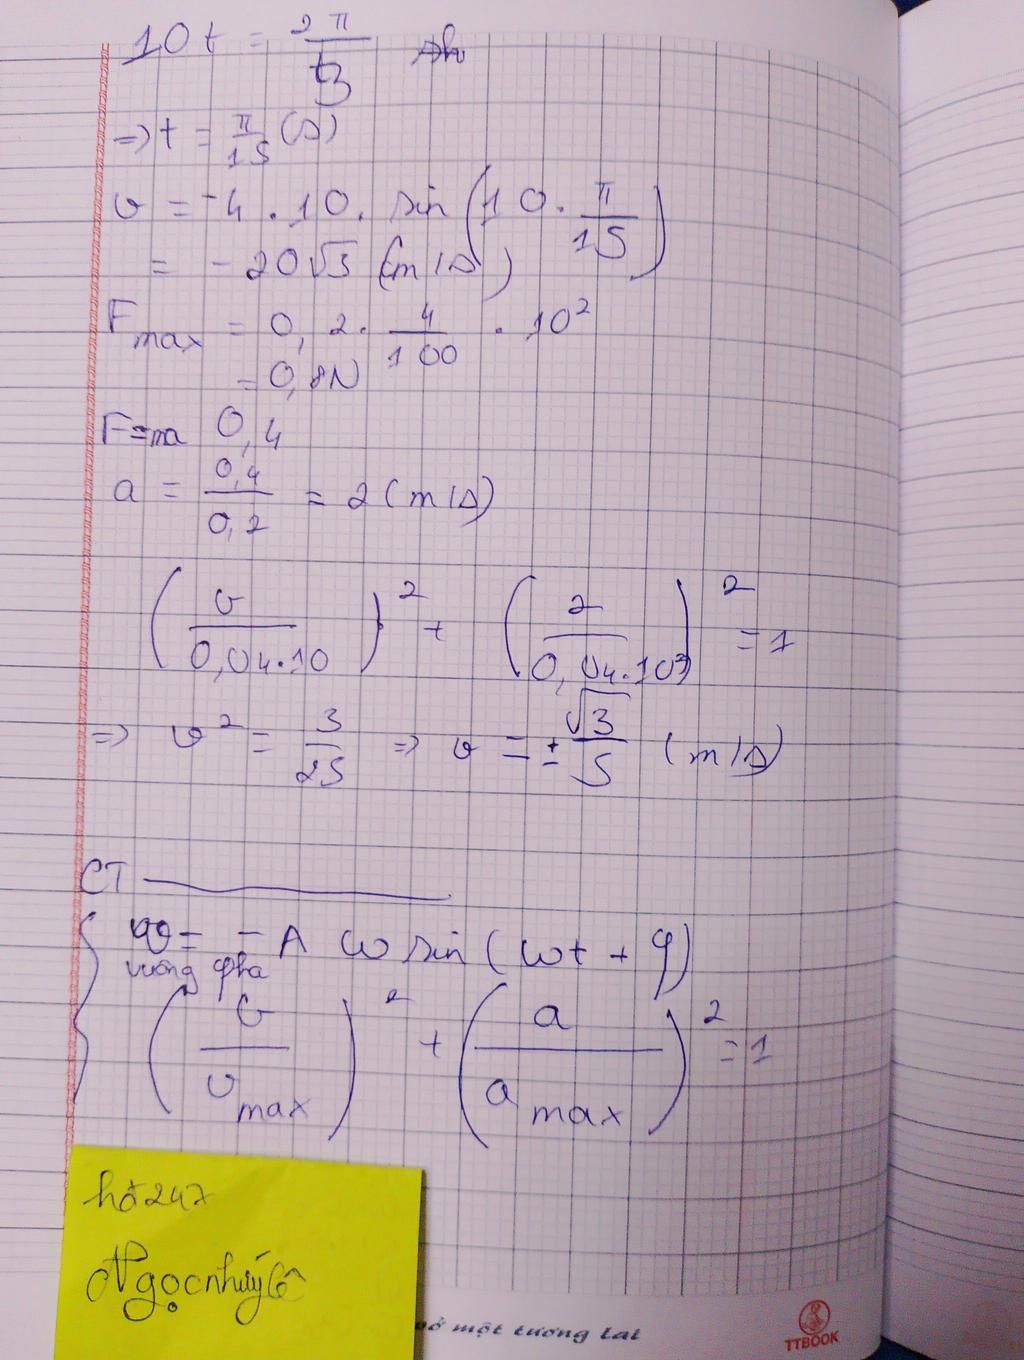 10t = 2π/3
=> t = π/15 (s)
v = -4 . 10 . sin(10 . π/15)
= -20√3 (m/s)
Fmax = 0,2 . 4/100 . 10²
= 0,8N
F=ma 0,4
a = 0,4/0,2 = 2 (m/s)
(v/0,04.10)² + (2/0,04.10²)² = 1
=> v² = 3/25 => v = ± √3/5 (m/s)
CT
v = - A ω sin (ωt + φ)
vuông pha
(v/vmax)² + (a/amax)² = 1
hđ247
Ngọcnhưý
một tương lai
TTBOOK